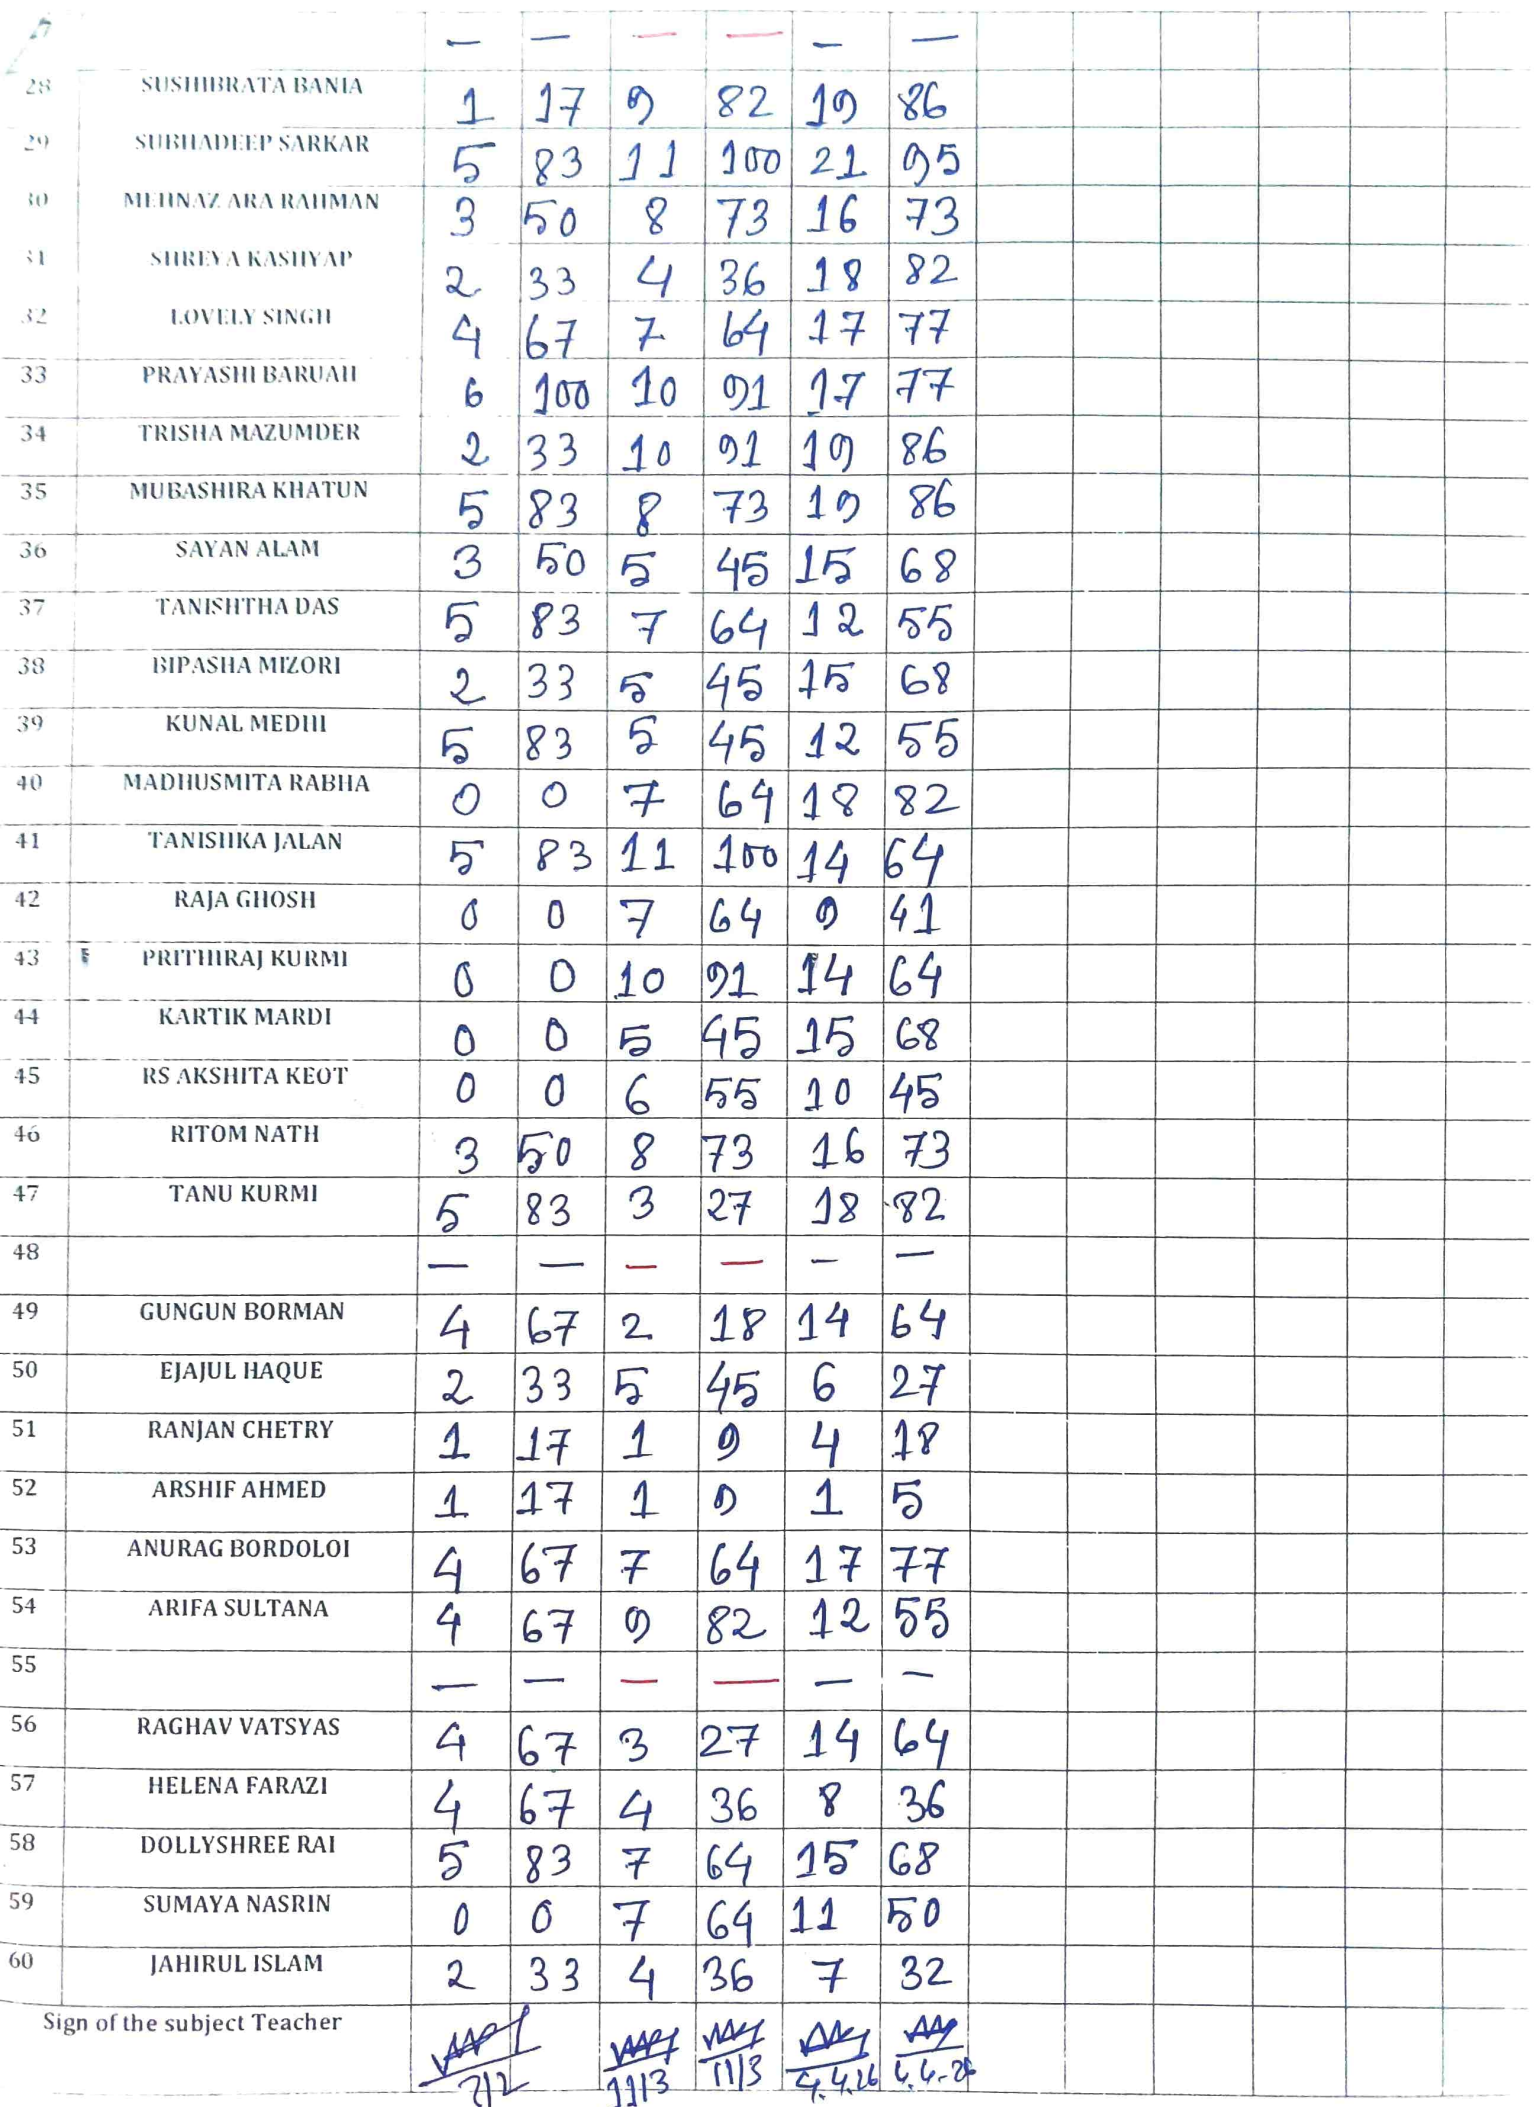 — — — — — —
28 SUSHIBRATA BANIA 1 17 9 82 19 86
29 SUBHADEEP SARKAR 5 83 11 100 21 95
30 MEHNAZ ARA RAHMAN 3 50 8 73 16 73
31 SHREYA KASHYAP 2 33 4 36 18 82
32 LOVELY SINGH 4 67 7 64 17 77
33 PRAYASHI BARUAH 6 100 10 91 17 77
34 TRISHA MAZUMDER 2 33 10 91 19 86
35 MUBASHIRA KHATUN 5 83 8 73 19 86
36 SAYAN ALAM 3 50 5 45 15 68
37 TANISHTHA DAS 5 83 7 64 12 55
38 BIPASHA MIZORI 2 33 5 45 15 68
39 KUNAL MEDHI 5 83 5 45 12 55
40 MADHUSMITA RABHA 0 0 7 64 18 82
41 TANISHKA JALAN 5 83 11 100 14 64
42 RAJA GHOSH 0 0 7 64 9 41
43 PRITHIRAJ KURMI 0 0 10 91 14 64
44 KARTIK MARDI 0 0 5 45 15 68
45 RS AKSHITA KEOT 0 0 6 55 10 45
46 RITOM NATH 3 50 8 73 16 73
47 TANU KURMI 5 83 3 27 18 82
48 — — — — — —
49 GUNGUN BORMAN 4 67 2 18 14 64
50 EJAJUL HAQUE 2 33 5 45 6 27
51 RANJAN CHETRY 1 17 1 9 4 18
52 ARSHIF AHMED 1 17 1 9 1 5
53 ANURAG BORDOLOI 4 67 7 64 17 77
54 ARIFA SULTANA 4 67 9 82 12 55
55 — — — — — —
56 RAGHAV VATSYAS 4 67 3 27 14 64
57 HELENA FARAZI 4 67 4 36 8 36
58 DOLLYSHREE RAI 5 83 7 64 15 68
59 SUMAYA NASRIN 0 0 7 64 11 50
60 JAHIRUL ISLAM 2 33 4 36 7 32
Sign of the subject Teacher
7/2 11/3 11/3 4.4.26 4.4.26